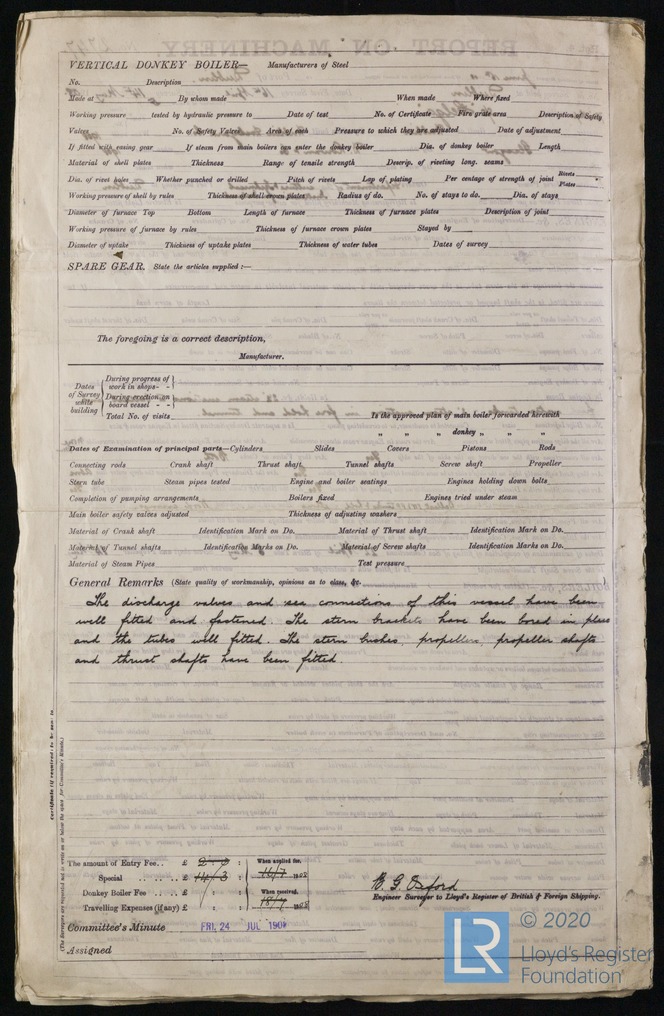 VERTICAL DONKEY BOILER— Manufacturers of Steel
No. Description
Made at By whom made When made Where fixed
Working pressure tested by hydraulic pressure to Date of test No. of Certificate Fire grate area Description of Safety
Valves No. of Safety Valves Area of each Pressure to which they are adjusted Date of adjustment
If fitted with easing gear If steam from main boilers can enter the donkey boiler Dia. of donkey boiler Length
Material of shell plates Thickness Range of tensile strength Descrip. of riveting long. seams
Dia. of rivet holes Whether punched or drilled Pitch of rivets Lap of plating Per centage of strength of joint Rivets Plates
Working pressure of shell by rules Thickness of shell crown plates Radius of do. No. of stays to do. Dia. of stays
Diameter of furnace Top Bottom Length of furnace Thickness of furnace plates Description of joint
Working pressure of furnace by rules Thickness of furnace crown plates Stayed by
Diameter of uptake Thickness of uptake plates Thickness of water tubes Dates of survey
SPARE GEAR. State the articles supplied :—
The foregoing is a correct description,
Manufacturer.
Dates of Survey while building
During progress of work in shops - -
During erection on board vessel - -
Total No. of visits
Is the approved plan of main boiler forwarded herewith
" " donkey " " "
Dates of Examination of principal parts—Cylinders Slides Covers Pistons Rods
Connecting rods Crank shaft Thrust shaft Tunnel shafts Screw shaft Propeller
Stern tube Steam pipes tested Engine and boiler seatings Engines holding down bolts
Completion of pumping arrangements Boilers fixed Engines tried under steam
Main boiler safety valves adjusted Thickness of adjusting washers
Material of Crank shaft Identification Mark on Do. Material of Thrust shaft Identification Mark on Do.
Material of Tunnel shafts Identification Marks on Do. Material of Screw shafts Identification Marks on Do.
Material of Steam Pipes Test pressure
General Remarks (State quality of workmanship, opinions as to class, &c.
The discharge valves and sea connections of this vessel have been
well fitted and fastened. The stern brackets have been bored in place
and the tubes well fitted. The stern bushes, propellers, propeller shafts
and thrust shafts have been fitted.
Certificate (if required) to be sent to
(The Surveyors are requested not to write on or below the space for Committee's Minute.)
The amount of Entry Fee . . £ : : When applied for,
Special . . . . . £ : : 16/7 1908
Donkey Boiler Fee . . . . £ : : When received,
Travelling Expenses (if any) £ : : 18/7 1908
W. G. Oxford
Engineer Surveyor to Lloyd's Register of British & Foreign Shipping.
Committee's Minute FRI. 24 JUL 1908
Assigned
LR © 2020
Lloyd's Register
Foundation